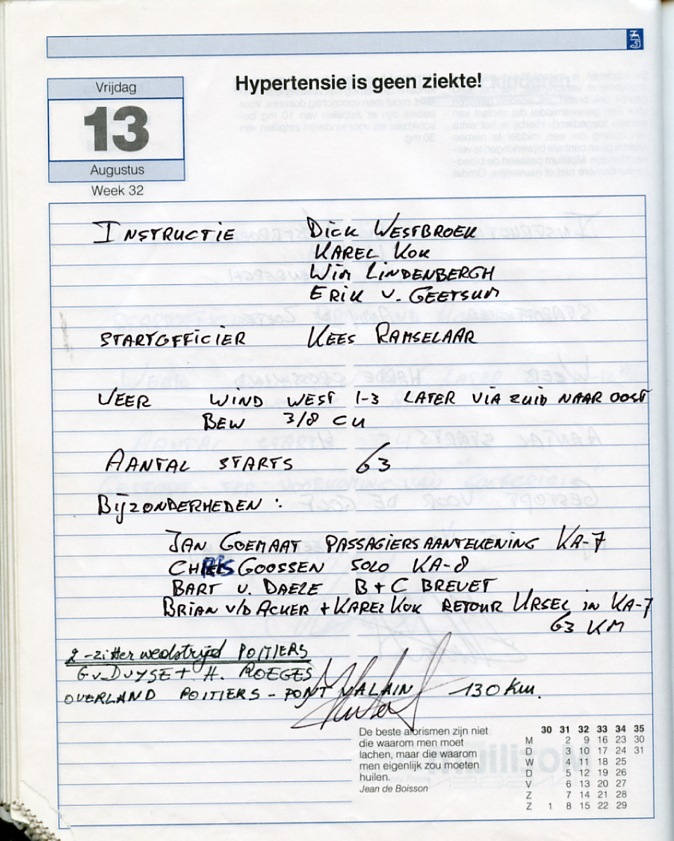 Vrijdag
13
Augustus
Week 32
Hypertensie is geen ziekte!
INSTRUCTIE DICK WESTBROEK
KAREL KOK
WIM LINDENBERGH
ERIK V. GEETSUM
STARTOFFICIER KEES RAMSELAAR
WEER WIND WEST 1-3 LATER VIA ZUID NAAR OOST
BEW 3/8 CU
AANTAL STARTS 63
BIJZONDERHEDEN :
JAN GOEMAAT PASSAGIERSAANTEKENING KA-7
CHRIS GOOSSEN SOLO KA-8
BART V. DAELE B+C BREVET
BRIAN V/D ACKER + KAREL KOK RETOUR URSEL IN KA-7
63 KM
2-zitter wedstrijd POITIERS
G. v. DUYSE + H. ROEGES
OVERLAND POITIERS - PONT VALAIN 130 Km.
De beste aforismen zijn niet
die waarom men moet
lachen, maar die waarom
men eigenlijk zou moeten
huilen.
Jean de Boisson
30 31 32 33 34 35
M 2 9 16 23 30
D 3 10 17 24 31
W 4 11 18 25
D 5 12 19 26
V 6 13 20 27
Z 7 14 21 28
Z 1 8 15 22 29